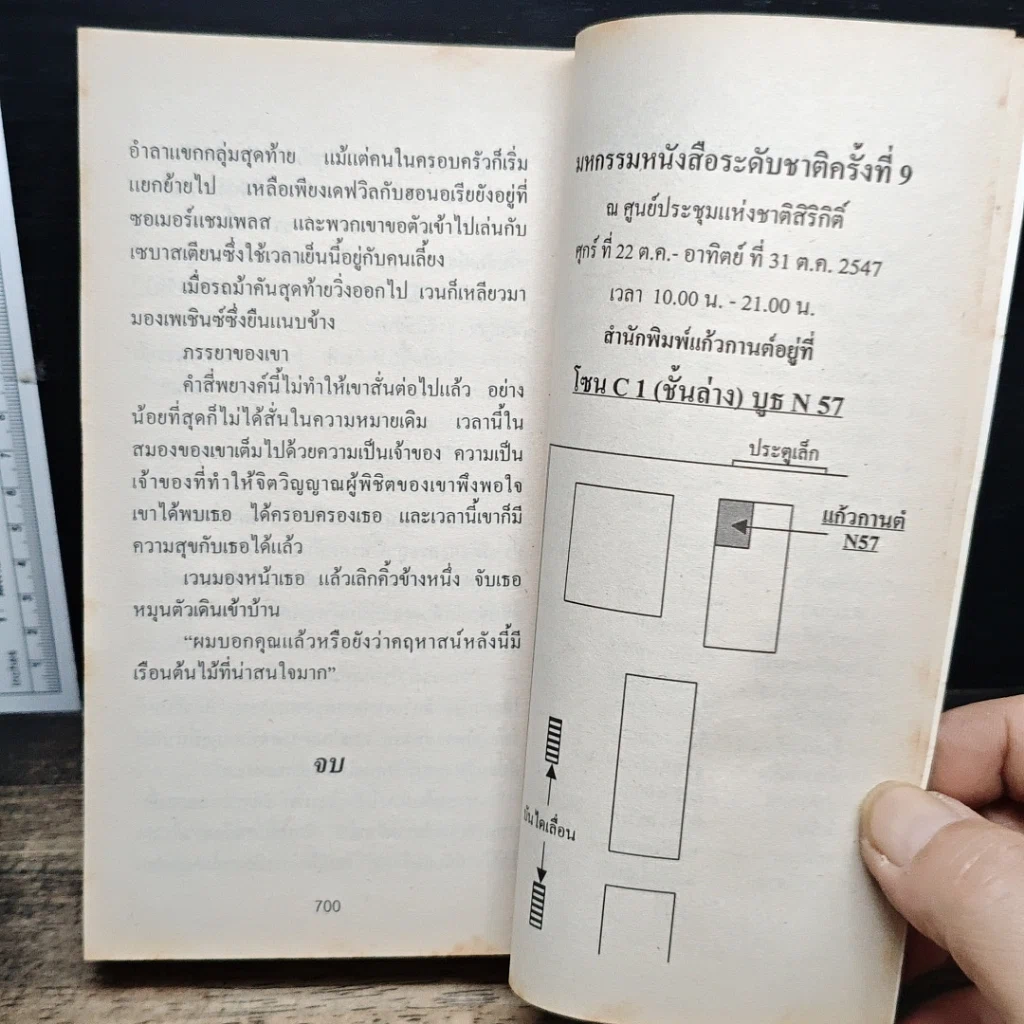 อำลาแขกกลุ่มสุดท้าย แม้แต่คนในครอบครัวก็เริ่ม
แยกย้ายไป เหลือเพียงเดฟวิลกับฮอนอเรียยังอยู่ที่
ซอเมอร์แชมเพลส และพวกเขาขอตัวเข้าไปเล่นกับ
เซบาสเตียนซึ่งใช้เวลาเย็นนี้อยู่กับคนเลี้ยง
เมื่อรถม้าคันสุดท้ายวิ่งออกไป เวนก็เหลียวมา
มองเพเชินซ์ซึ่งยืนแนบข้าง
ภรรยาของเขา
คำสี่พยางค์นี้ไม่ทำให้เขาสั่นต่อไปแล้ว อย่าง
น้อยที่สุดก็ไม่ได้สั่นในความหมายเดิม เวลานี้ใน
สมองของเขาเต็มไปด้วยความเป็นเจ้าของ ความเป็น
เจ้าของที่ทำให้จิตวิญญาณผู้พิชิตของเขาพึงพอใจ
เขาได้พบเธอ ได้ครอบครองเธอ และเวลานี้เขาก็มี
ความสุขกับเธอได้แล้ว
เวนมองหน้าเธอ แล้วเลิกคิ้วข้างหนึ่ง จับเธอ
หมุนตัวเดินเข้าบ้าน
“ผมบอกคุณแล้วหรือยังว่าคฤหาสน์หลังนี้มี
เรือนต้นไม้ที่น่าสนใจมาก”
จบ
700
มหกรรมหนังสือระดับชาติครั้งที่ 9
ณ ศูนย์ประชุมแห่งชาติสิริกิติ์
ศุกร์ ที่ 22 ต.ค.- อาทิตย์ ที่ 31 ต.ค. 2547
เวลา 10.00 น. - 21.00 น.
สำนักพิมพ์แก้วกานต์อยู่ที่
โซน C 1 (ชั้นล่าง) บูธ N 57
ประตูเล็ก
แก้วกานต์
N57
บันไดเลื่อน